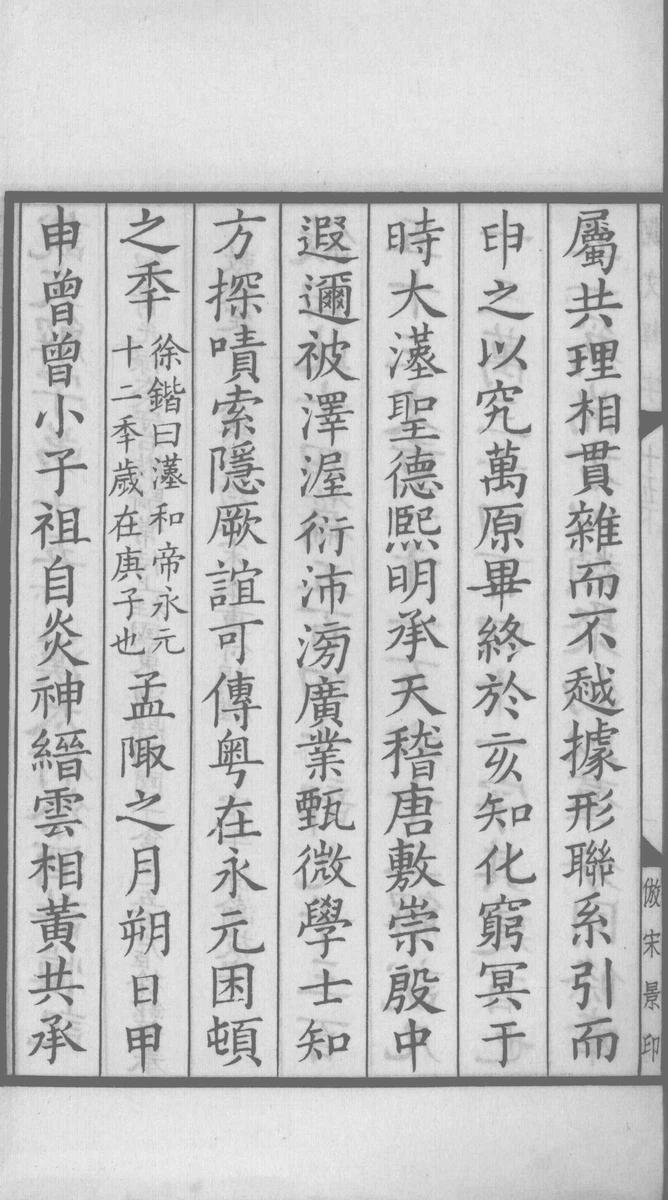 屬共理相貫雜而不𧻚據形聯系引而
申之以究萬原畢終於亥知化窮冥于
時大𤅣聖德熙明承天稽唐敷崇殷中
遐邇被澤渥衍沛滂廣業甄微學士知
方探嘖索隱厥誼可傳粤在永元困頓
之秊徐鍇曰𤅣和帝永元
十二秊歲在庚子也孟陬之月朔日甲
申曾曾小子祖自炎神縉雲相黄共承
倣宋景印